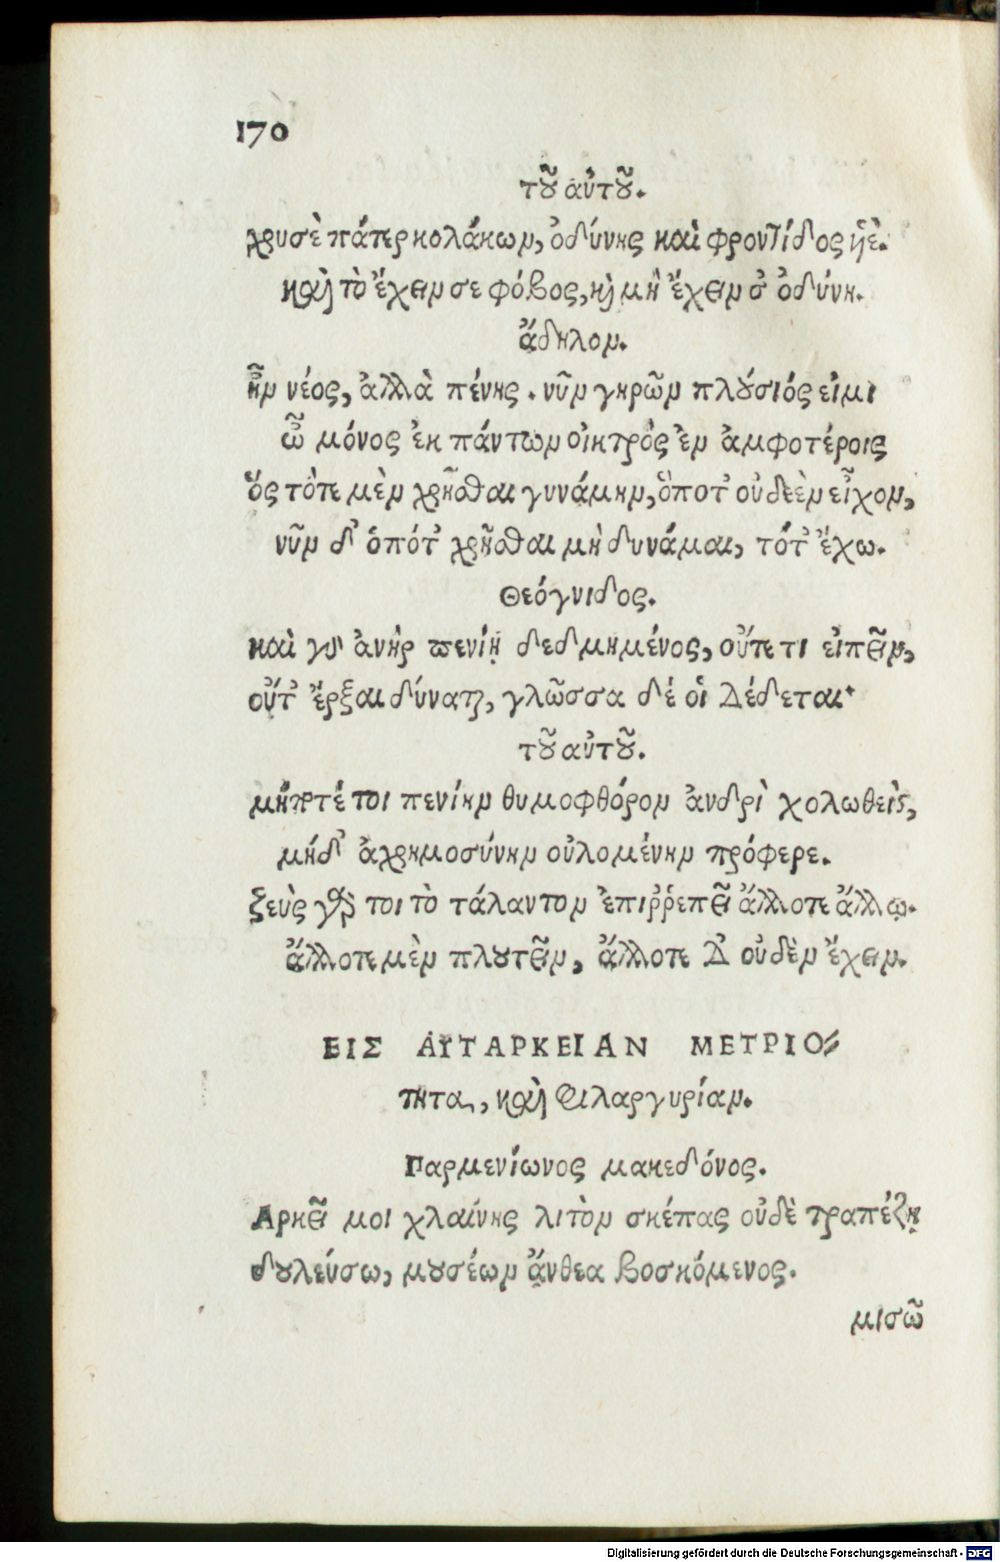 170
τοῦ αὐτοῦ.
χρυσὲ πάτερ κολάκων, ὀδύνης καὶ φροντίδος ὑιὲ.
καὶ τὸ ἔχειν σε φόβος, καὶ μὴ ἔχειν σ' ὀδύνη.
ἄδηλον.
ἦν νέος, ἀλλὰ πένης. νῦν γηρῶν πλούσιός εἰμι
ὦ μόνος ἐκ πάντων οἰκτρὸς ἐν ἀμφοτέροις
ὅς τότε μὲν χρῆσθαι γυνάμην, ὅποτ' οὐδεὲν εἶχον,
νῦν δ' ὁπότ' χρῆσθαι μὴ δυνάμαι, τότ' ἔχω.
Θεόγνιδος.
καὶ γὸ ἀνὴρ πενίῃ δεδμημένος, οὔτε τι εἰπεῖν,
οὔτ' ἔρξαι δύναται, γλῶσσα δέ οἱ δέδεται·
τοῦ αὐτοῦ.
μήποτέ τοι πενίην θυμοφθόρον ἀνδρὶ χολωθεὶς,
μήδ' ἀχρημοσύνην οὐλομένην πρόφερε.
ξεὺς γάρ τοι τὸ τάλαντον ἐπιῤῥεπεῖ ἄλλοτε ἄλλῳ.
ἄλλοτε μὲν πλουτεῖν, ἄλλοτε δ' οὐδὲν ἔχειν.
ΕΙΣ ΑΥΤΑΡΚΕΙΑΝ ΜΕΤΡΙΟ⸗
τητα, καὶ Φιλαργυρίαν.
Παρμενίωνος μακεδόνος.
Αρκεῖ μοι χλαίνης λιτὸν σκέπας οὐδὲ τραπέζῃ
δουλεύσω, μουσέων ἄνθεα βοσκόμενος.
μισῶ
Digitalisierung gefördert durch die Deutsche Forschungsgemeinschaft - DFG